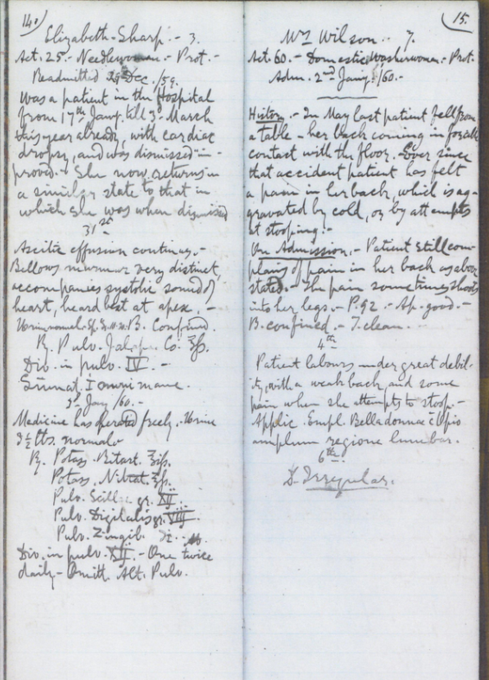 14
Elizabeth Sharp. - 3.
Aet. 25. - Needlewoman. - Prot. -
Readmitted Dec. /59.
Was a patient in the Hospital
from 17th Jany. till 3d March
this year already, with cardiac
dropsy, and was dismissed im-
proved. - She now returns in
a similar state to that in
which she was when dismissed
31st
Ascitic effusion continues. -
Bellows murmur very distinct,
accompanies systolic sound of
heart, heard best at apex. -
Urine normal. B. Confined.
℞. Pulv. Jalap. Co. ℥ss.
Div. in pulv. IV. -
Sumat. I omni mane.
2d Jany /60. -
Medicine has operated freely. - Urine
3½ lbs. normal. -
℞. Potass. Bitart. ℥iss.
Potass. Nitrat. ℥ss.
Pulv. Scillae gr. XII.
Pulv. Digitalis gr. VIII.
Pulv. Zingib.
Div. in pulv. XII. - One twice
daily - Omitt. Alt. Pulv.
15.
Mrs Wilson. - 7.
Aet. 60. - Domestic Washerwoman. - Prot.
Adm. 2nd Jany. /60. -
History. - In May last patient fell from
a table - her back coming in forcible
contact with the floor. - Ever since
that accident patient has felt
a pain in her back, which is ag-
gravated by cold, or by attempts
at stooping. -
On Admission. - Patient still com-
plains of pain in her back as above
stated. - The pain sometimes shoots
into her legs. - P. 92. - Ap. good. -
B. confined. - T. clean. -
4th
Patient labours under great debil-
ity, with a weak back and some
pain when she attempts to stoop. -
Applic. Empl. Belladonnae c̄ Opio
amplum regione lumbar.
6th. -
D. Irregular.